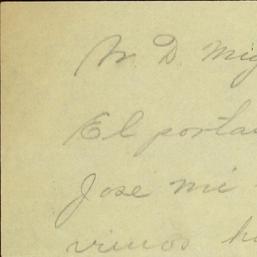 Sr. D. Mig
El porta
Jose mi
vimos h